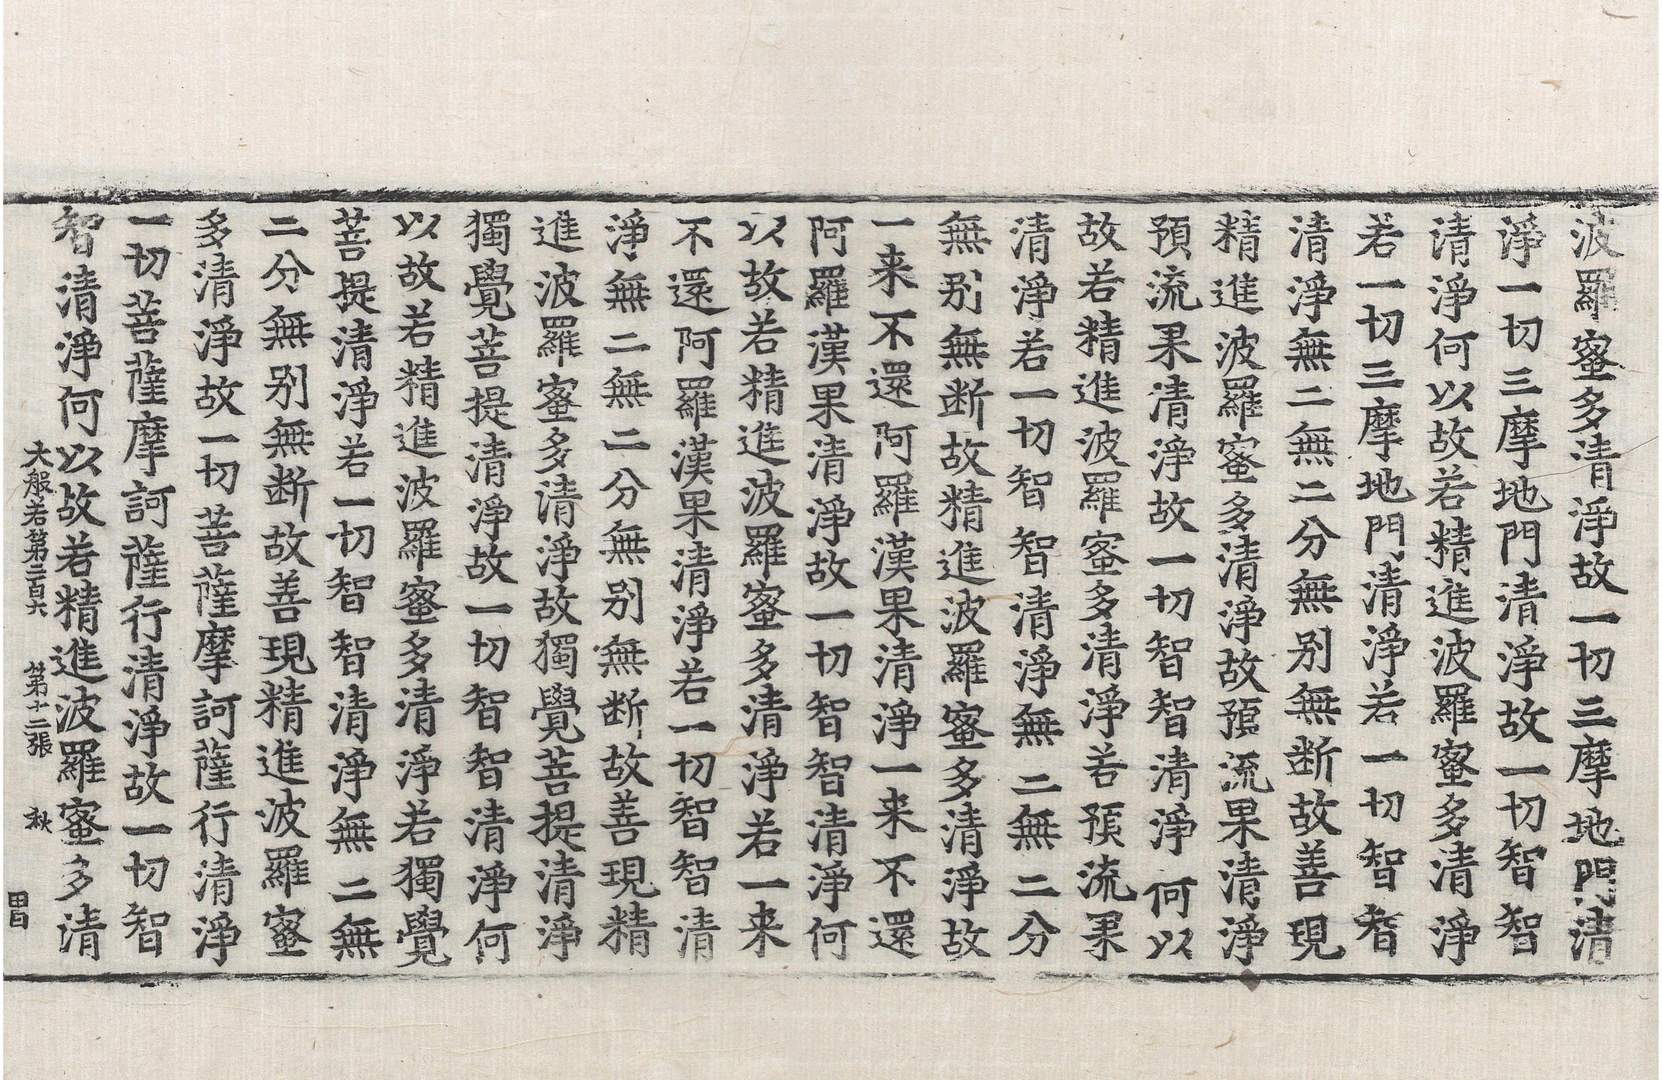 波羅蜜多清淨故一切三摩地門清
淨一切三摩地門清淨故一切智智
清淨何以故若精進波羅蜜多清淨
若一切三摩地門清淨若一切智智
清淨無二無二分無別無断故善現
精進波羅蜜多清淨故預流果清淨
預流果清淨故一切智智清淨何以
故若精進波羅蜜多清淨若預流果
清淨若一切智智清淨無二無二分
無别無断故精進波羅蜜多清淨故
一来不還阿羅漢果清淨一来不還
阿羅漢果清淨故一切智智清淨何
以故若精進波羅蜜多清淨若一来
不還阿羅漢果清淨若一切智智清
淨無二無二分無别無断故善現精
進波羅蜜多清淨故獨覺菩提清淨
獨覺菩提清淨故一切智智清淨何
以故若精進波羅蜜多清淨若獨覺
菩提清淨若一切智智清淨無二無
二分無别無断故善現精進波羅蜜
多清淨故一切菩薩摩訶薩行清淨
一切菩薩摩訶薩行清淨故一切智
智清淨何以故若精進波羅蜜多清
大般若第二百六 第十二張 秋